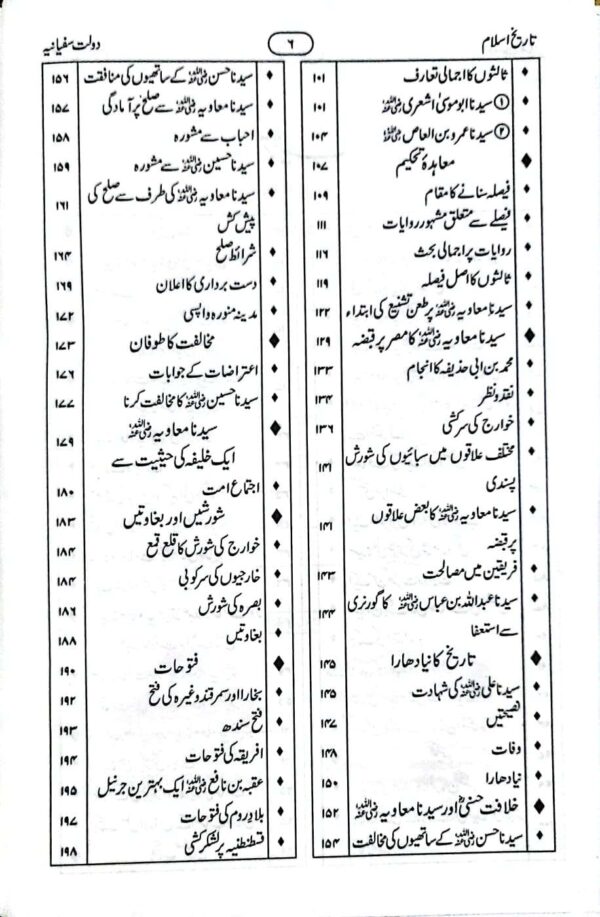 تاریخ اسلام ۶ دولت سفیانیہ
♦ ثالثوں کا اجمالی تعارف ۱۰۱
♦ ① سیدنا ابو موسیٰ اشعری رضی اللہ عنہ ۱۰۱
♦ ② سیدنا عمرو بن العاص رضی اللہ عنہ ۱۰۴
◆ معاہدۂ تحکیم ۱۰۷
♦ فیصلہ سنانے کا مقام ۱۰۹
♦ فیصلے سے متعلق مشہور روایات ۱۱۱
♦ روایات پر اجمالی بحث ۱۱۶
♦ ثالثوں کا اصل فیصلہ ۱۱۹
♦ سیدنا معاویہ رضی اللہ عنہ پر طعن تشنیع کی ابتداء ۱۲۲
◆ سیدنا معاویہ رضی اللہ عنہ کا مصر پر قبضہ ۱۲۹
♦ محمد بن ابی حذیفہ کا انجام ۱۳۳
♦ نقد و نظر ۱۳۴
♦ خوارج کی سرکشی ۱۳۶
♦ مختلف علاقوں میں سبائیوں کی شورش ۱۴۱
پسندی
♦ سیدنا معاویہ رضی اللہ عنہ کا بعض علاقوں ۱۴۱
پر قبضہ
♦ فریقین میں مصالحت ۱۴۳
♦ سیدنا عبداللہ بن عباس رضی اللہ عنہ کا گورنری ۱۴۴
سے استعفا
◆ تاریخ کا نیا دھارا ۱۴۵
♦ سیدنا علی رضی اللہ عنہ کی شہادت ۱۴۵
♦ نصیحتیں ۱۴۷
♦ وفات ۱۴۸
♦ نیا دھارا ۱۵۰
◆ خلافت حسنؓ اور سیدنا معاویہ رضی اللہ عنہ ۱۵۲
♦ سیدنا حسن رضی اللہ عنہ کے ساتھیوں کی مخالفت ۱۵۴
♦ سیدنا حسن رضی اللہ عنہ کے ساتھیوں کی منافقت ۱۵۶
♦ سیدنا معاویہ رضی اللہ عنہ سے صلح پر آمادگی ۱۵۷
♦ احباب سے مشورہ ۱۵۸
♦ سیدنا حسین رضی اللہ عنہ سے مشورہ ۱۵۹
♦ سیدنا معاویہ رضی اللہ عنہ کی طرف سے صلح کی ۱۶۱
پیش کش
♦ شرائط صلح ۱۶۴
♦ دست برداری کا اعلان ۱۶۹
♦ مدینہ منورہ واپسی ۱۷۲
◆ مخالفت کا طوفان ۱۷۳
♦ اعتراضات کے جوابات ۱۷۶
♦ سیدنا حسین رضی اللہ عنہ کا مخالفت کرنا ۱۷۷
◆ سیدنا معاویہ رضی اللہ عنہ ۱۷۹
ایک خلیفہ کی حیثیت سے
♦ اجتماع امت ۱۸۰
◆ شورشیں اور بغاوتیں ۱۸۳
♦ خوارج کی شورش کا قلع قمع ۱۸۴
♦ خارجیوں کی سرکوبی ۱۸۴
♦ بصرہ کی شورش ۱۸۶
♦ بغاوتیں ۱۸۸
◆ فتوحات ۱۹۰
♦ بخارا اور سمرقند وغیرہ کی فتح ۱۹۲
♦ فتح سندھ ۱۹۳
♦ افریقہ کی فتوحات ۱۹۴
♦ عقبہ بن نافع رضی اللہ عنہ ایک بہترین جرنیل ۱۹۵
♦ بلاد روم کی فتوحات ۱۹۷
♦ قسطنطنیہ پر لشکر کشی ۱۹۸